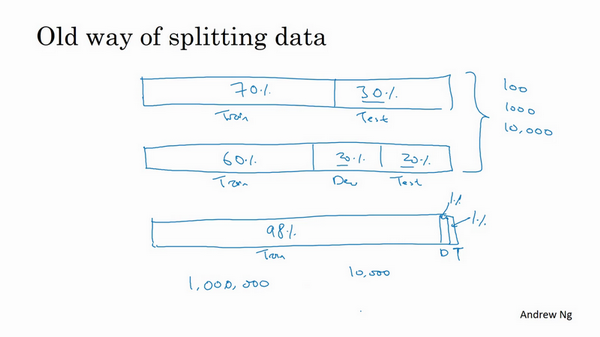 Old way of splitting data
70% 30%
Train Test
100
1000
10,000
60% 20% 20%
Train Dev Test
1%
1%
98%
Train D T
1,000,000 10,000
Andrew Ng